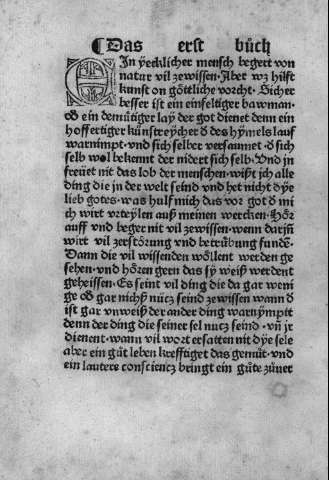 ¶Das erst bůch
EIn yecklicher mensch begert von
natur vil zewissen. Aber wz hilft
kunst on götliche vorcht. Sicher
besser ist ein einfeltiger bawman.
od ein demütiger lay der got dienet denn ein
hoffertiger künstreycher d des hymels lauf
warnimpt. vnd sich selber versaumet. d sich
selb wol bekennt der nidert sich selb. Vnd jn
freüet nit das lob der menschen. wißt jch alle
ding die jn der welt seind vnd het nicht dye
lieb gotes. was hulf mich das vor got d mi
ch wirt vrteylen auß meinen wercken. Hör
auff vnd beger nit vil zewissen. wenn darjn
wirt vil zerstörung vnd betrübung fundē.
Dann die vil wissenden wöllent werden ge
sehen. vnd hören gern das sy weiß werdent
geheissen. Es seint vil ding die da gar weni
ge od gar nichß nücz seind zewissen wann d
ist gar vnweiß der ander ding warnympt
denn der ding die seiner sel nucz seind. vñ jr
dienent. wann vil wort ersatten nit dye sele
aber ein gůt leben krefftiget das gemüt. vnd
ein lautere conscienz bringt ein gůte zůuer